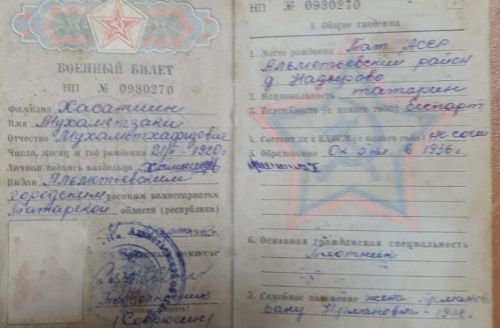 ВОЕННЫЙ БИЛЕТ
НП № 0980270
Фамилия Хасаншин
Имя Мухаметзаки
Отчество Мухаметхафизович
Число, месяц и год рождения 1920 г.
Личная подпись владельца
Выдан Альметьевским
городским военным комиссариатом
Татарской области (республики)
Подполковник
НП № 0980270
1. Общие сведения
1. Место рождения Тат. АССР
Альметьевский район
д. Надырово
2. Национальность татарин
3. Партийность (с какого года) беспарт.
4. Состоял ли в ВЛКСМ (с какого года) не сост
5. Образование Ок. 5 кл. в 1936 г.
6. Основная гражданская специальность
Плотник
7. Семейное положение жена -
Бану